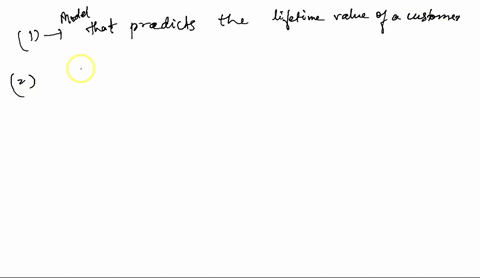 (1) → Model that predicts the lifetime value of a customer
(2)